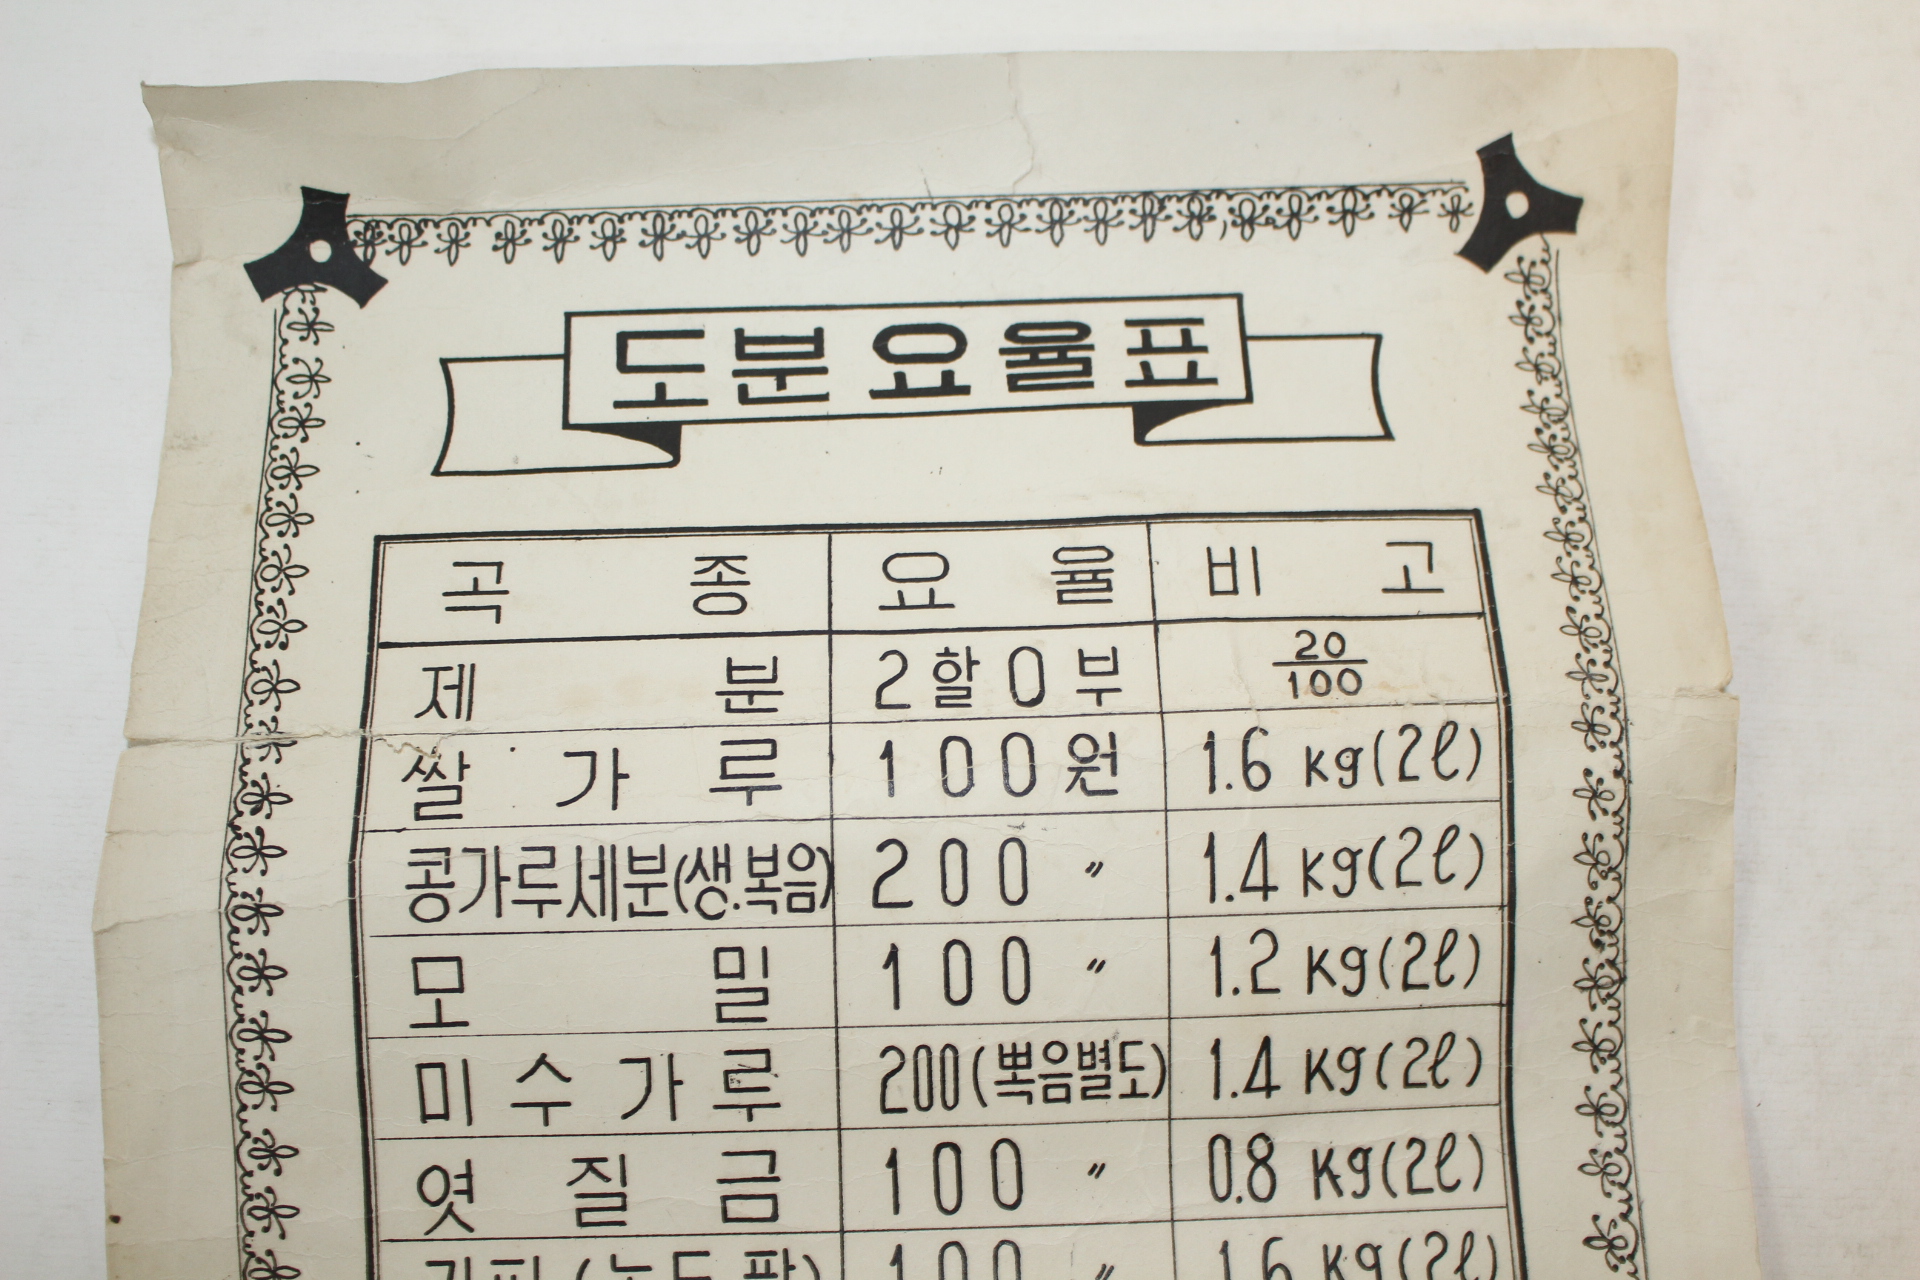 도분요율표
곡종 요율 비고
제분 2할0부 20/100
쌀가루 100원 1.6 kg(2ℓ)
콩가루세분(생.볶음) 200 〃 1.4 kg(2ℓ)
모밀 100 〃 1.2 kg(2ℓ)
미수가루 200(뽁음별도) 1.4 kg(2ℓ)
엿질금 100 〃 0.8 kg(2ℓ)
100 〃 1.6 kg(2ℓ)